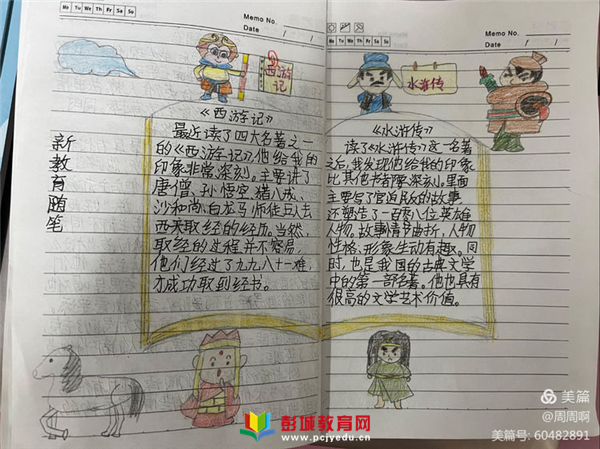 Mo Tu We Th Fr Sa Su
Memo No.
Date / /
Mo Tu We Th Fr Sa Su
Memo No.
Date / /
西游记
水浒传
新教育随笔
《西游记》
最近读了四大名著之一
的《西游记》他给我的
印象非常深刻。主要讲了
唐僧、孙悟空、猪八戒、
沙和尚、白龙马师徒五人去
西天取经的经历。当然,
取经的过程并不容易,
他们经过了九九八十一难,
才成功取到经书。
《水浒传》
读了《水浒传》这一名著
之后,我发现他给我的印象
比其他书都深刻。里面
主要写了官逼民反的故事
还塑造了一百零八位英雄
人物。故事情节曲折,人物
性格、形象生动有趣。同
时,也是我国的古典文学
中的第一部名著。他也具有
很高的文学艺术价值。
彭城教育网
www.pcjyedu.cn
美篇
@周周啊
美篇号: 60482891